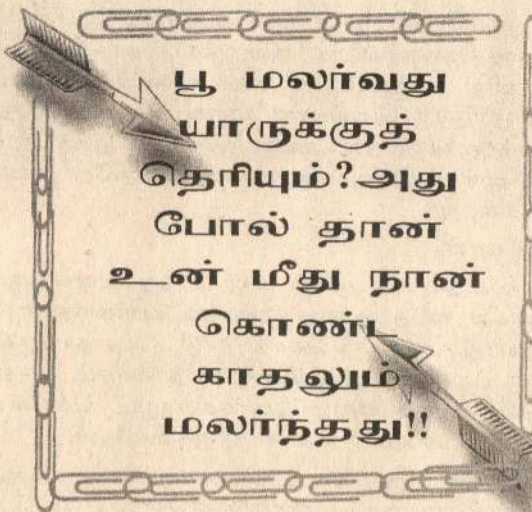 பூ மலர்வது
யாருக்குத்
தெரியும்?அது
போல் தான்
உன் மீது நான்
கொண்ட
காதலும்
மலர்ந்தது!!